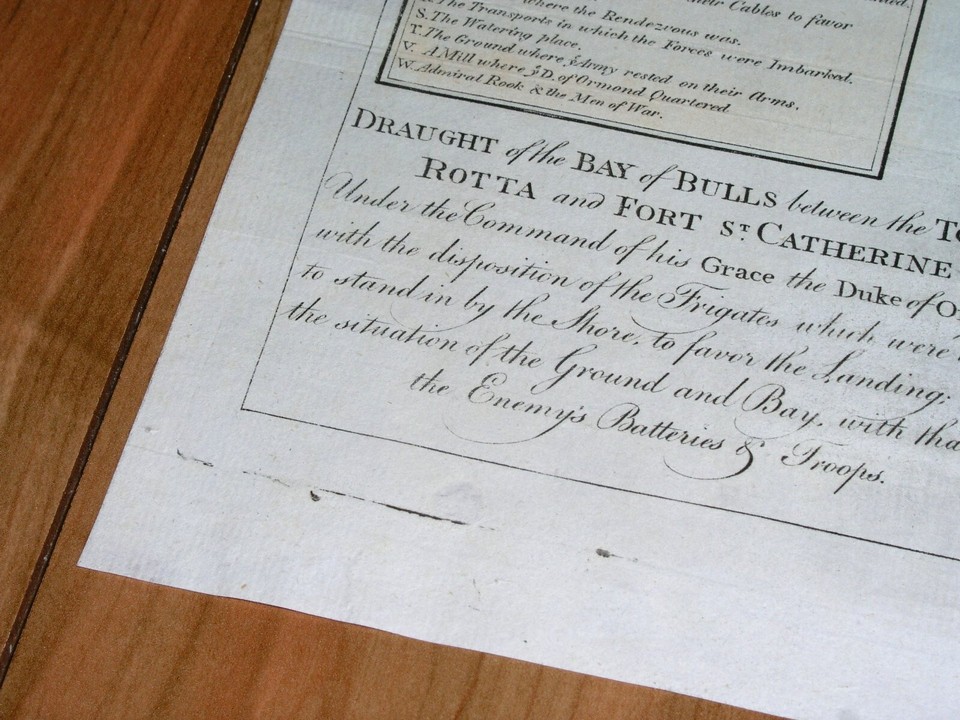 their Cables to favor
where the Rendezvous was.
The Transports in which the Forces were Imbarked.
S. The Watering place.
T. The Ground where ye Army rested on their Arms.
V. A Mill where ye D. of Ormond Quartered
W. Admiral Rook & the Men of War.
DRAUGHT of the BAY of BULLS between the
ROTTA and FORT ST. CATHERINE
Under the Command of his Grace the Duke of
with the disposition of the Frigates which were
to stand in by the Shore, to favor the Landing;
the situation of the Ground and Bay, with
the Enemy's Batteries & Troops.